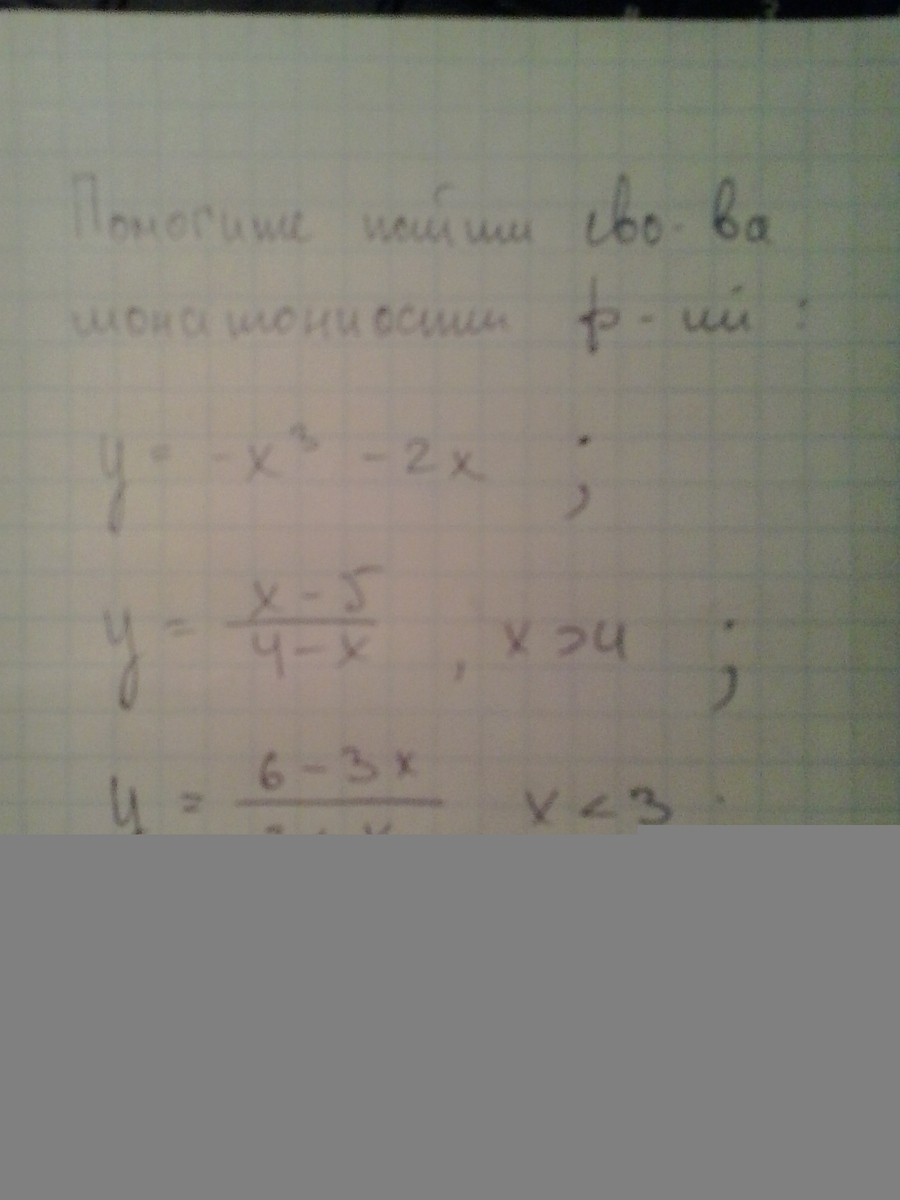 Помогите найти сво-ва
монатонности ф-ий :
y = -x³ - 2x ;
y = x - 5 / 4 - x , x > 4 ;
y = 6 - 3x x < 3